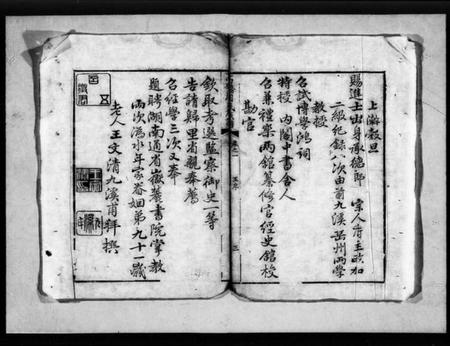 上瀚穀旦
賜進士出身承德郎 掌人府主政加
二級紀錄八次由前九溪岳州兩學
教授
召試博學鴻詞
特授 內閣中書舍人
召兼禮樂兩館纂修官經史館校
勘官
欽取考選監察御史一等
告請歸里省親奉薦
召經學三次又奉
題聘湖南通省嶽麓書院掌教
兩次溈水年家眷姻弟九十一歲
老人王文清九溪甫拜撰